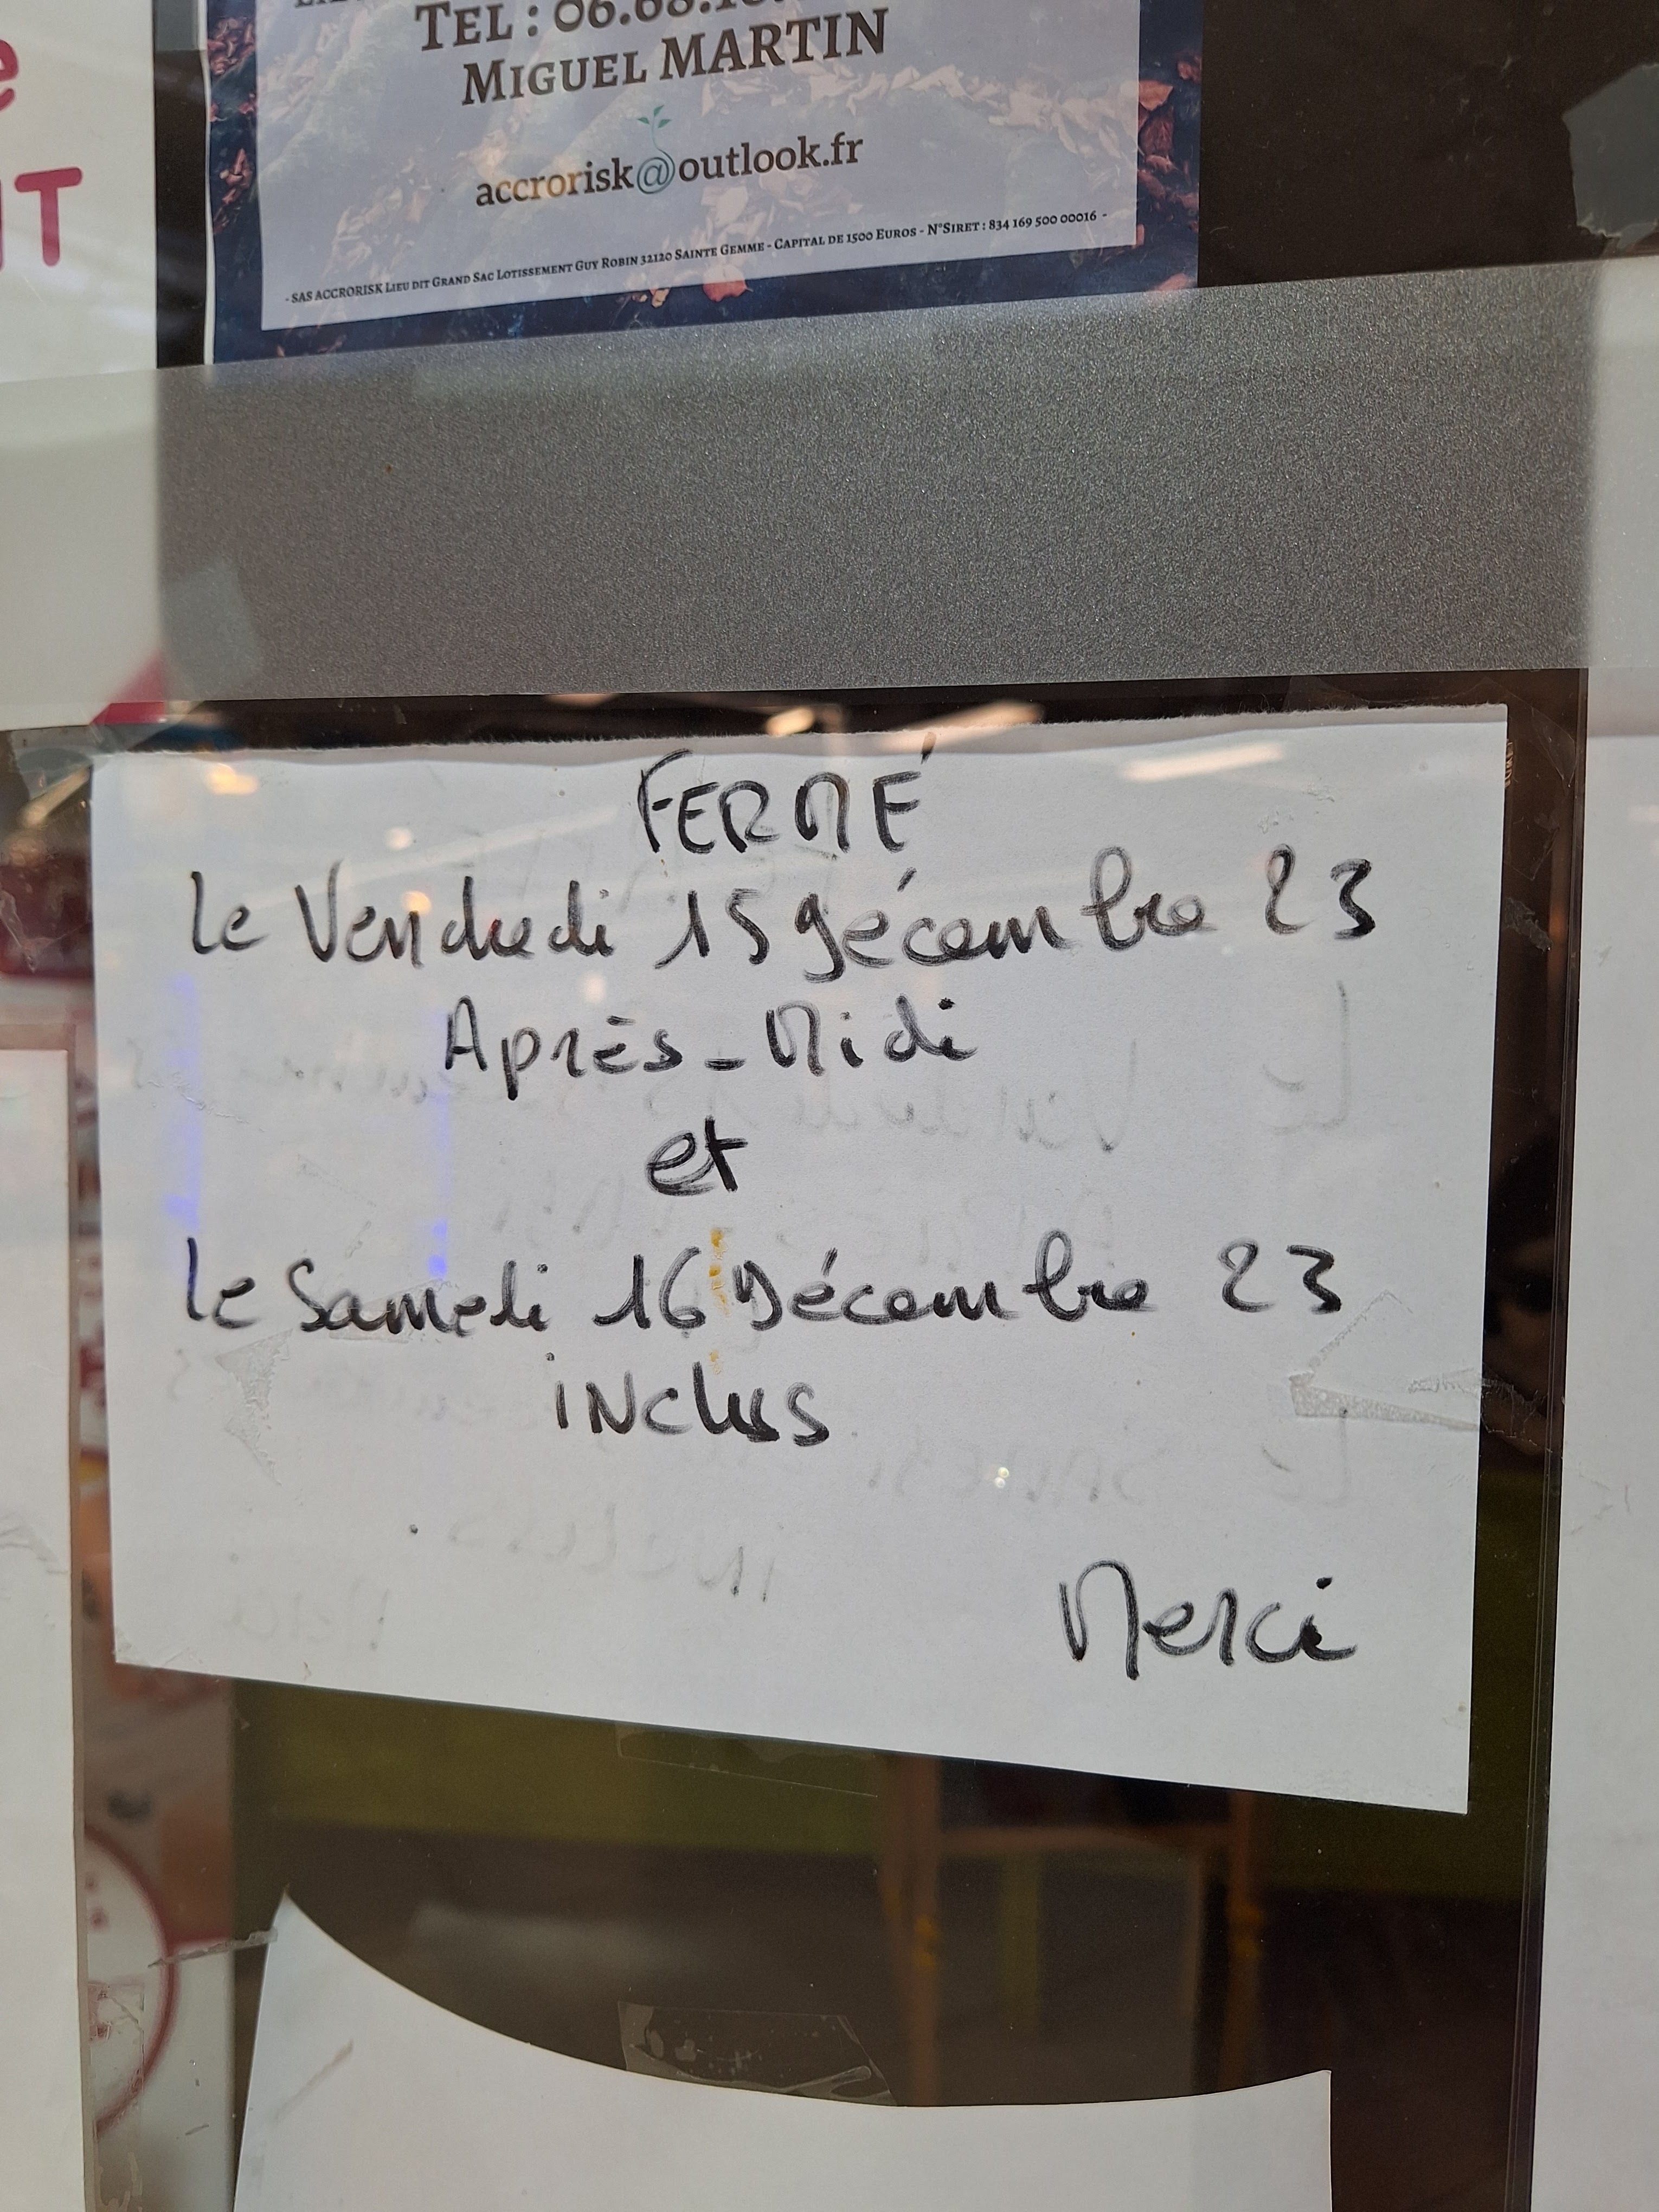 e
NT
TEL : 06.68.
MIGUEL MARTIN
accrorisk@outlook.fr
- SAS ACCRORISK LIEU DIT GRAND SAC LOTISSEMENT GUY ROBIN 32120 SAINTE GEMME - CAPITAL DE 1500 EUROS - N°SIRET : 834 169 500 00016 -
FERMÉ
Le Vendredi 15 Décembre 23
Après-Midi
et
Le Samedi 16 Décembre 23
inclus
Merci